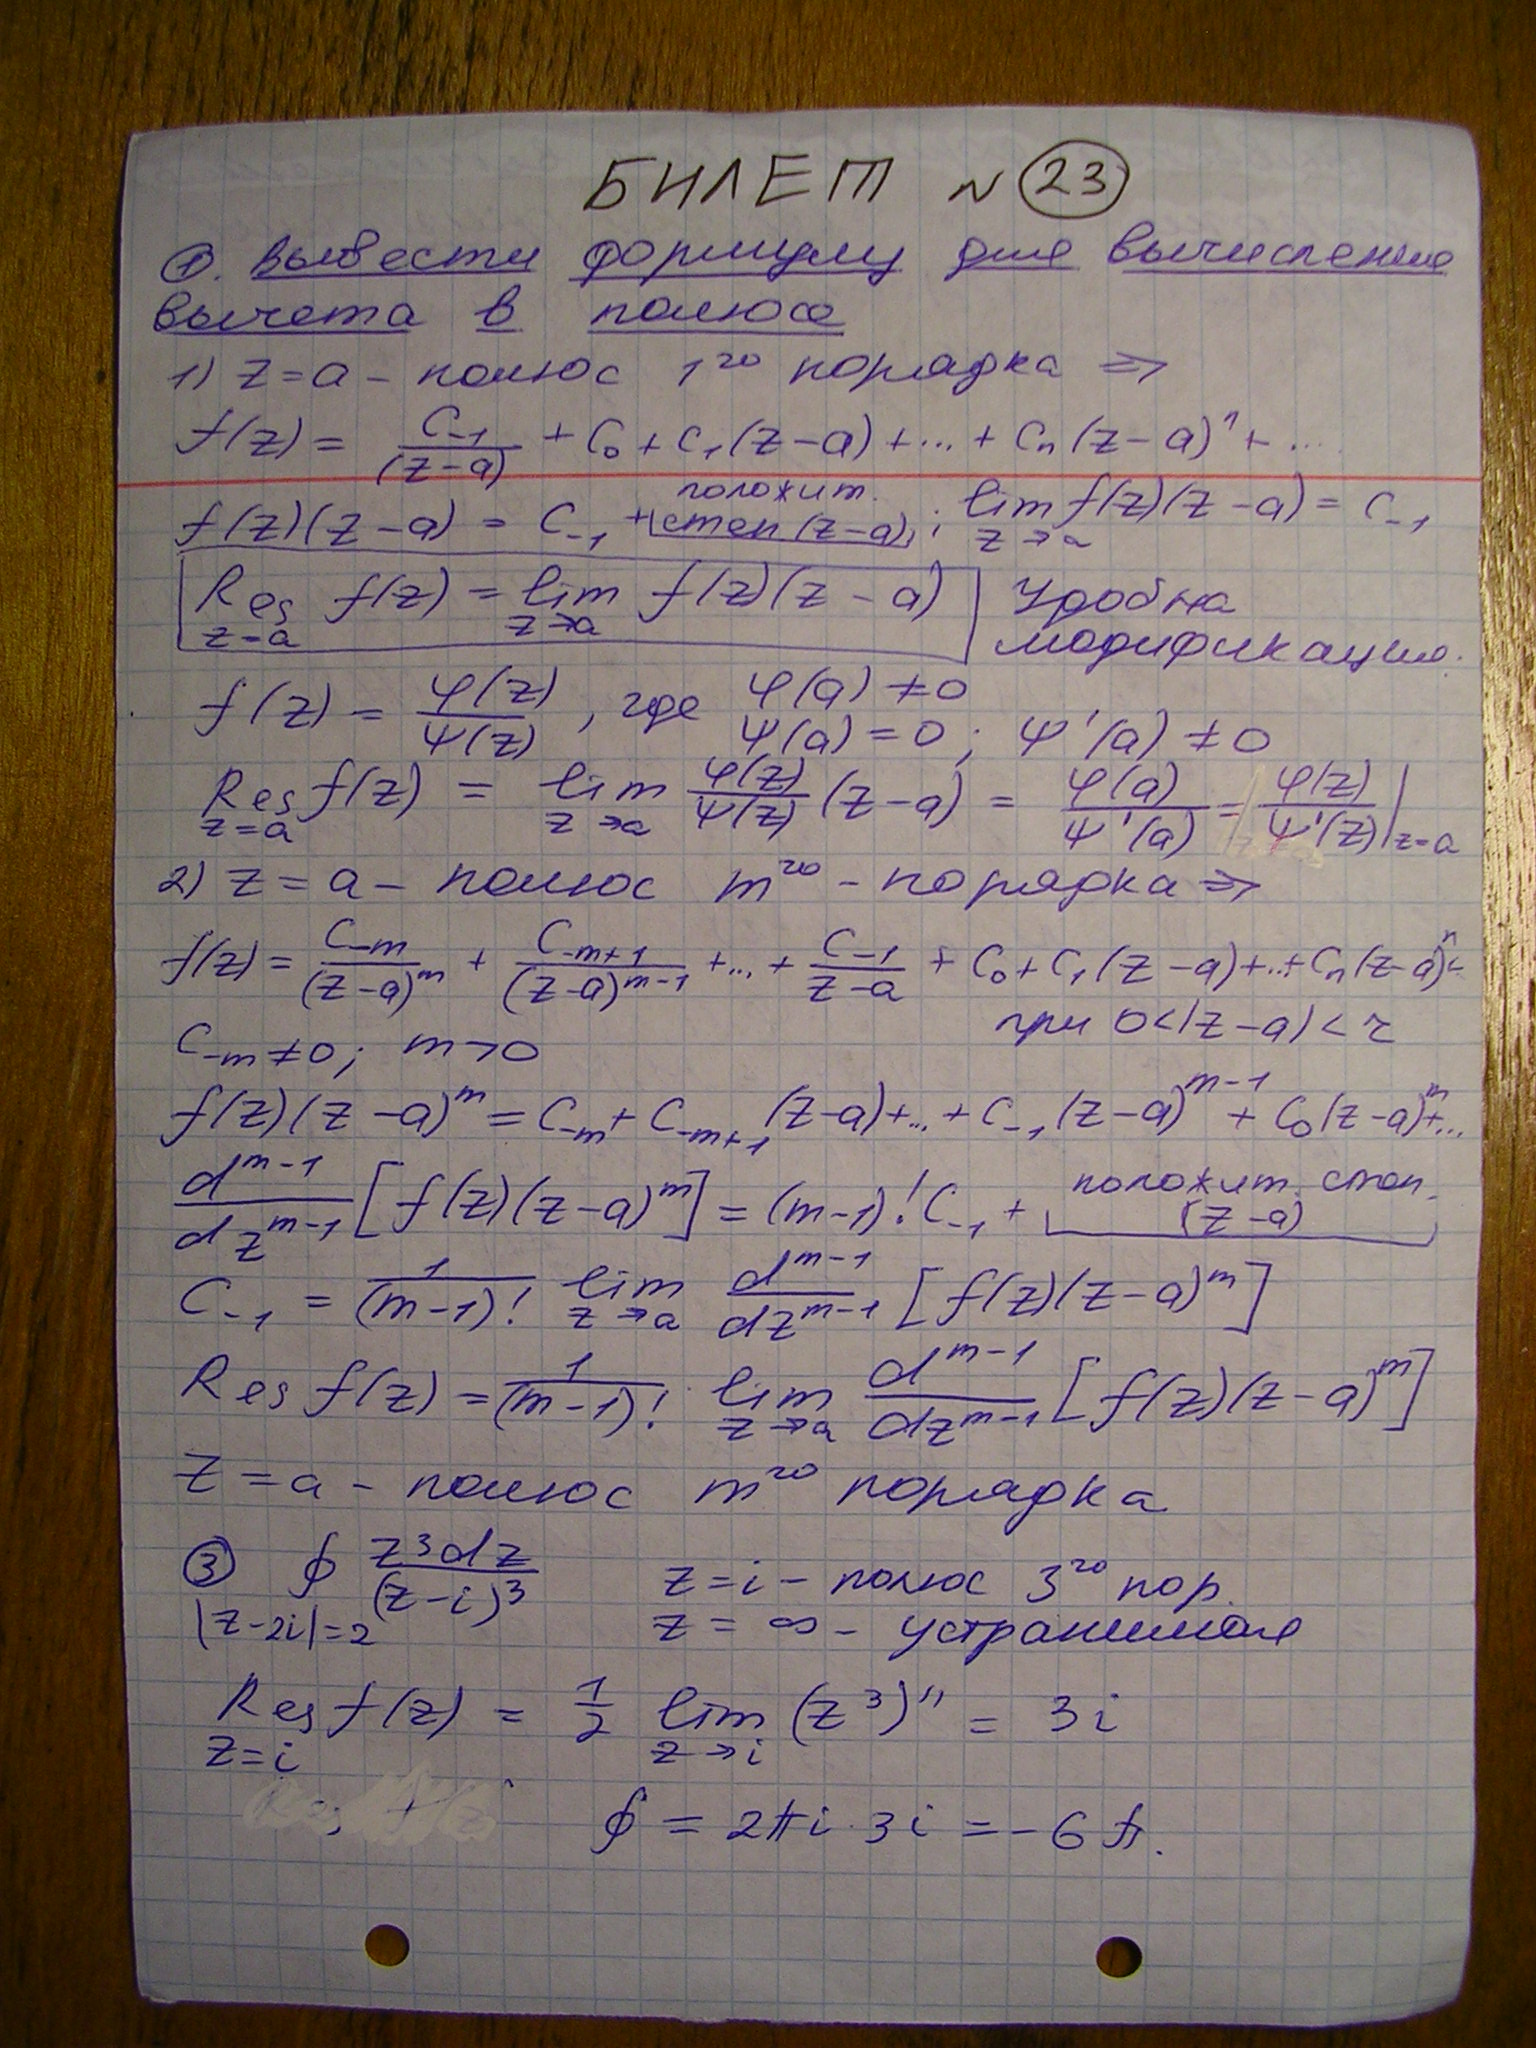 БИЛЕТ N 23
1. Вывести формулу для вычисления
вычета в полюсе
1) z = a – полюс 1го порядка ⇒
f(z) = C₋₁/(z–a) + C₀ + C₁(z–a) + ... + Cₙ(z–a)ⁿ + ...
f(z)(z–a) = C₋₁ + положит. степ (z–a); lim z→a f(z)(z–a) = C₋₁
Res z=a f(z) = lim z→a f(z)(z–a) Удобна
модификация.
f(z) = φ(z)/ψ(z), где φ(a) ≠ 0
ψ(a) = 0; ψ'(a) ≠ 0
Res z=a f(z) = lim z→a φ(z)/ψ(z) (z–a) = φ(a)/ψ'(a) = φ(z)/ψ'(z) | z=a
2) z = a – полюс mго – порядка ⇒
f(z) = C₋ₘ/(z–a)ᵐ + C₋ₘ₊₁/(z–a)ᵐ⁻¹ + ... + C₋₁/(z–a) + C₀ + C₁(z–a) + ... + Cₙ(z–a)ⁿ
при 0<|z–a)<r
C₋ₘ ≠ 0; m>0
f(z)(z–a)ᵐ = C₋ₘ + C₋ₘ₊₁(z–a) + ... + C₋₁(z–a)ᵐ⁻¹ + C₀(z–a)ᵐ + ...
dᵐ⁻¹/dzᵐ⁻¹ [f(z)(z–a)ᵐ] = (m–1)! C₋₁ + положит. степ. (z–a)
C₋₁ = 1/(m–1)! lim z→a dᵐ⁻¹/dzᵐ⁻¹ [f(z)(z–a)ᵐ]
Res f(z) = 1/(m–1)! lim z→a dᵐ⁻¹/dzᵐ⁻¹ [f(z)(z–a)ᵐ]
z = a – полюс mго порядка
3 ∮ |z–2i|=2 z³dz/(z–i)³ z = i – полюс 3го пор.
z = ∞ – устранимая
Res z=i f(z) = 1/2 lim z→i (z³)'' = 3i
∮ = 2πi · 3i = –6π.